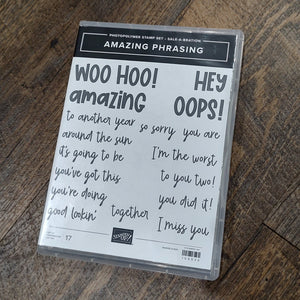 PHOTOPOLYMER STAMP SET • SALE-A-BRATION
AMAZING PHRASING
WOO HOO! HEY
amazing OOPS!
to another year so sorry you are
around the sun
it's going to be I'm the worst
you've got this to you two!
you're doing you did it!
good lookin' together I miss you
17
STAMPIN' UP!